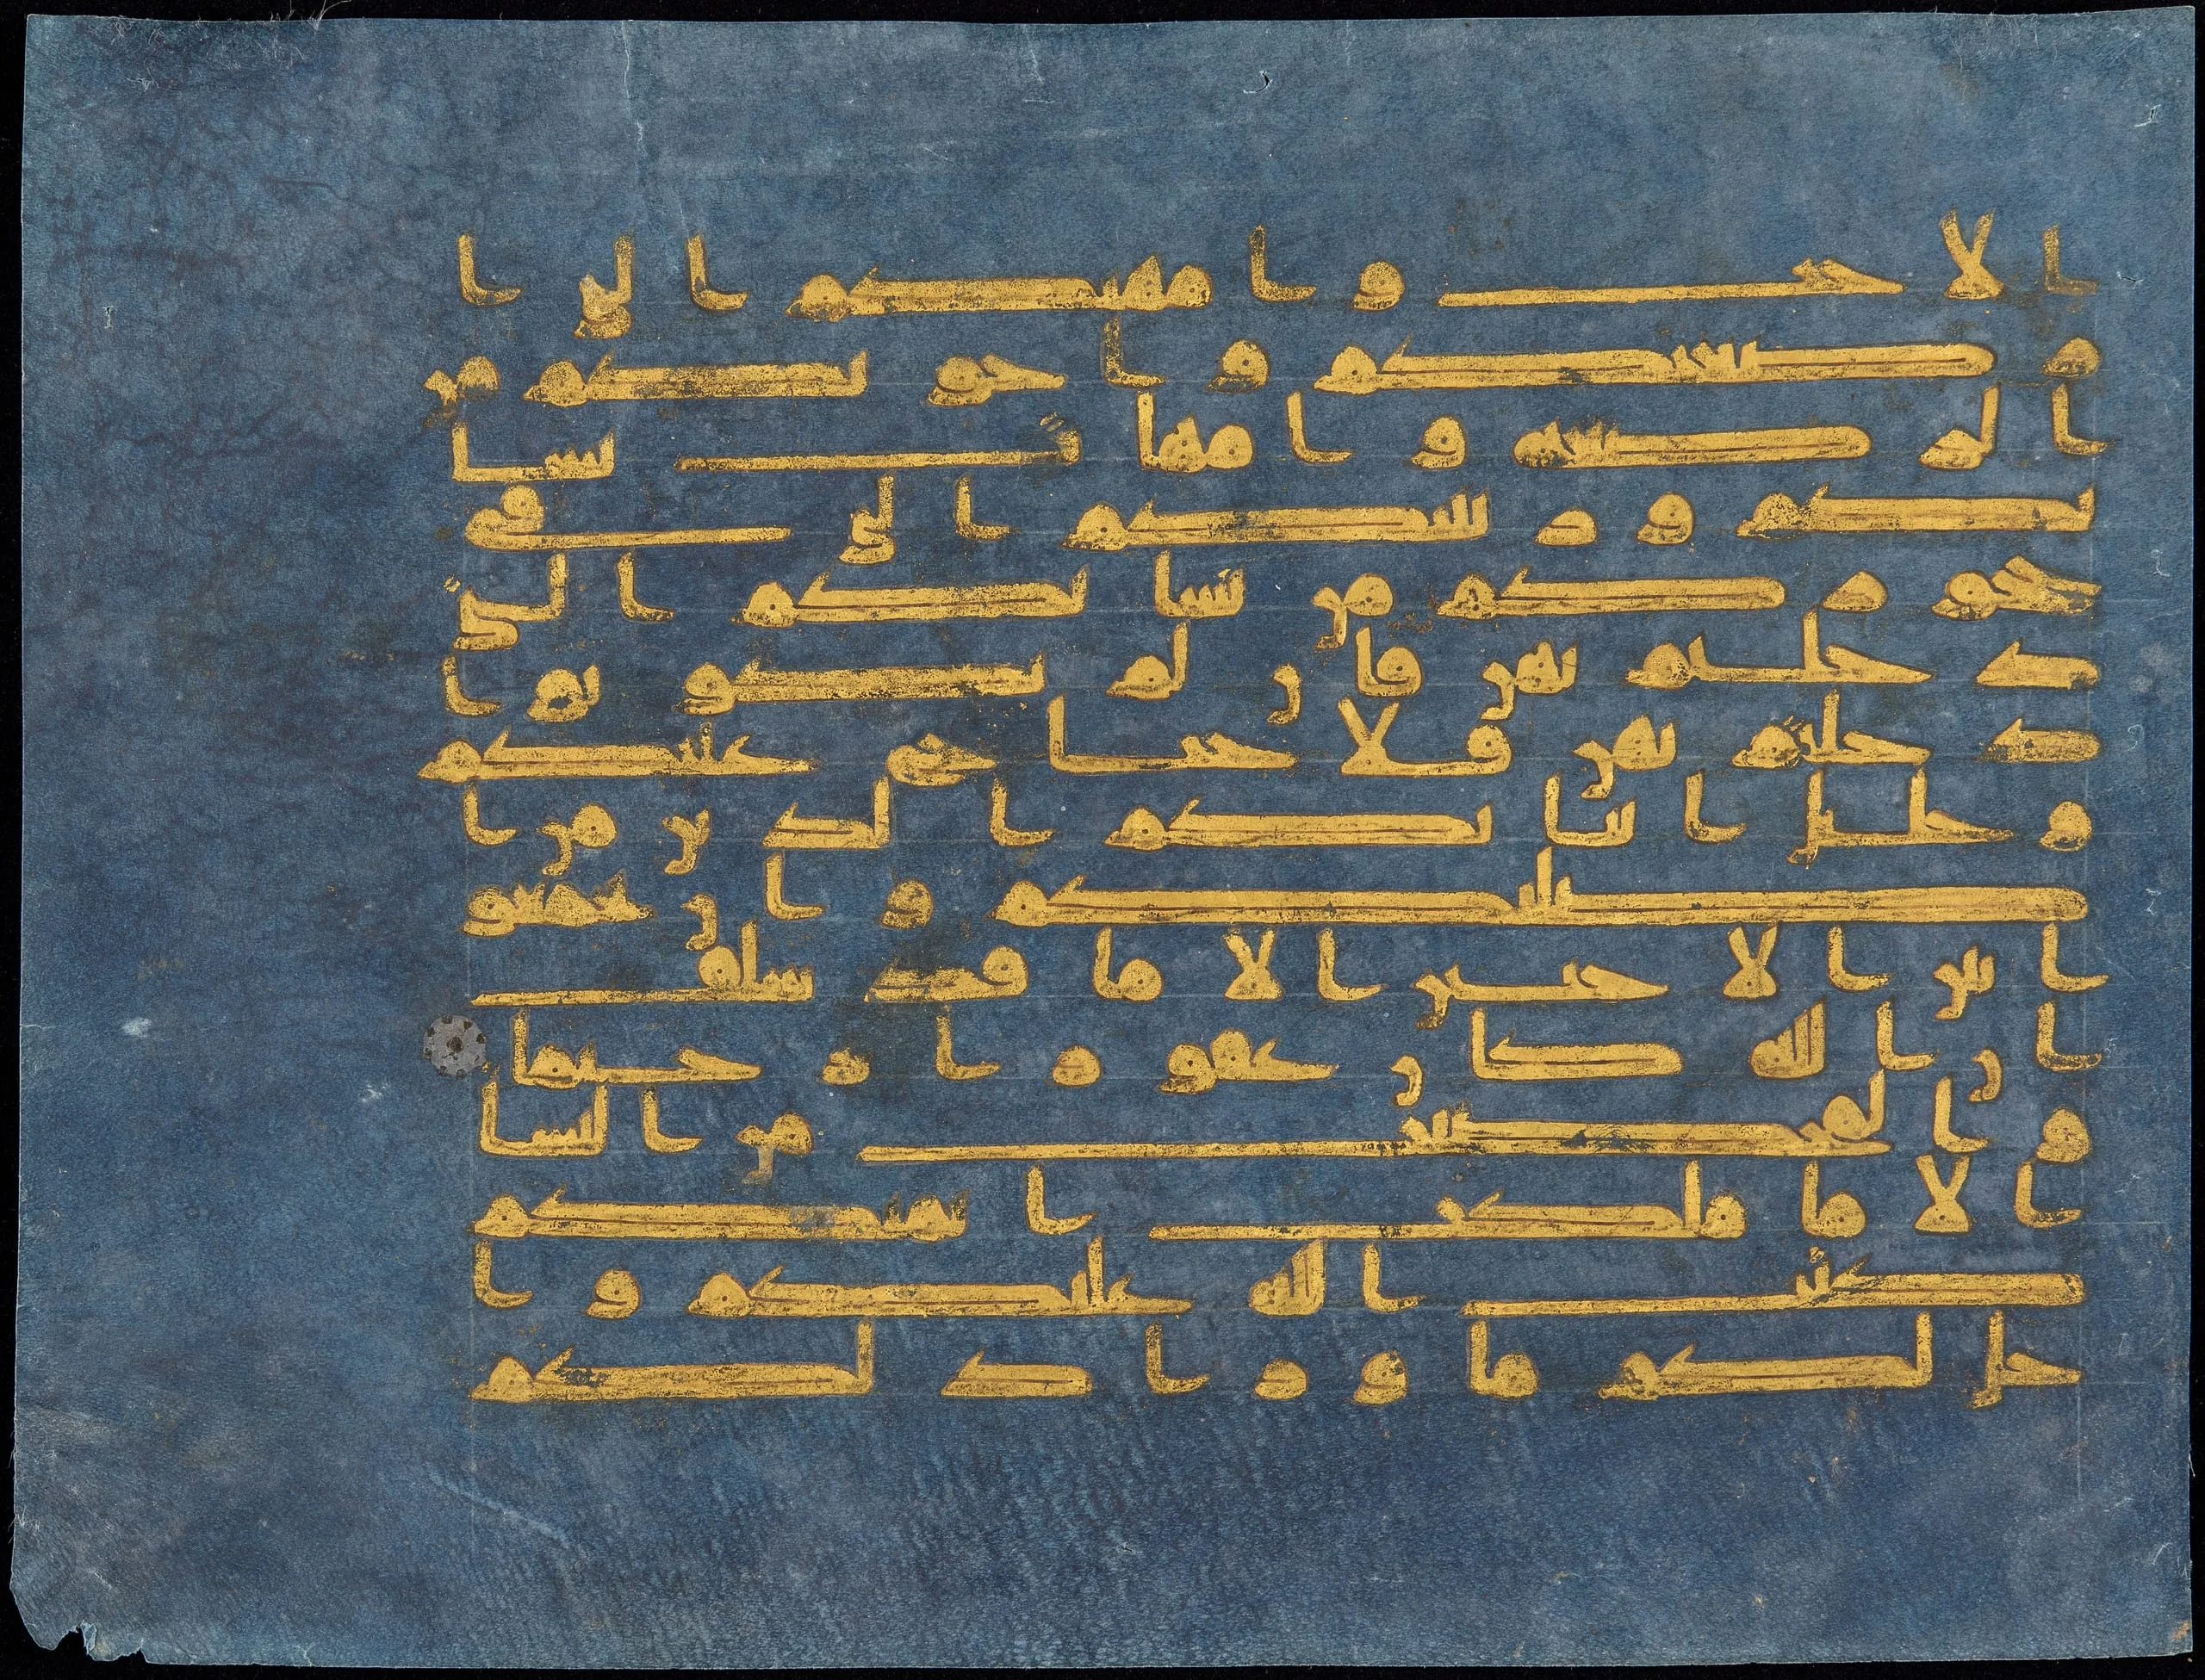 الاخت وامهتكم التي ا
رضعنكم واخوتكم من
الرضعه وامهات نسا
ئكم وربئبكم التي في
حجوركم من نسائكم التي
دخلتم بهن فان لم تكونوا
دخلتم بهن فلا جناح عليكم
وحلئل ابنائكم الذين من ا
صلبكم وان تجمعو
ا بين الاختين الا ما قد سلف
ان الله كان غفورا رحيما
والمحصنت من النسا
الا ما ملكت ايمنكم
كتب الله عليكم وا
حل لكم ما ورا ذلكم